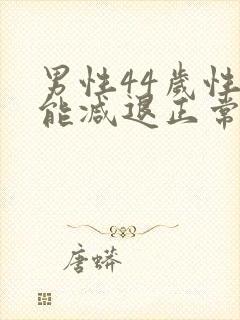 男性44歲性
能減退正常
唐蟒